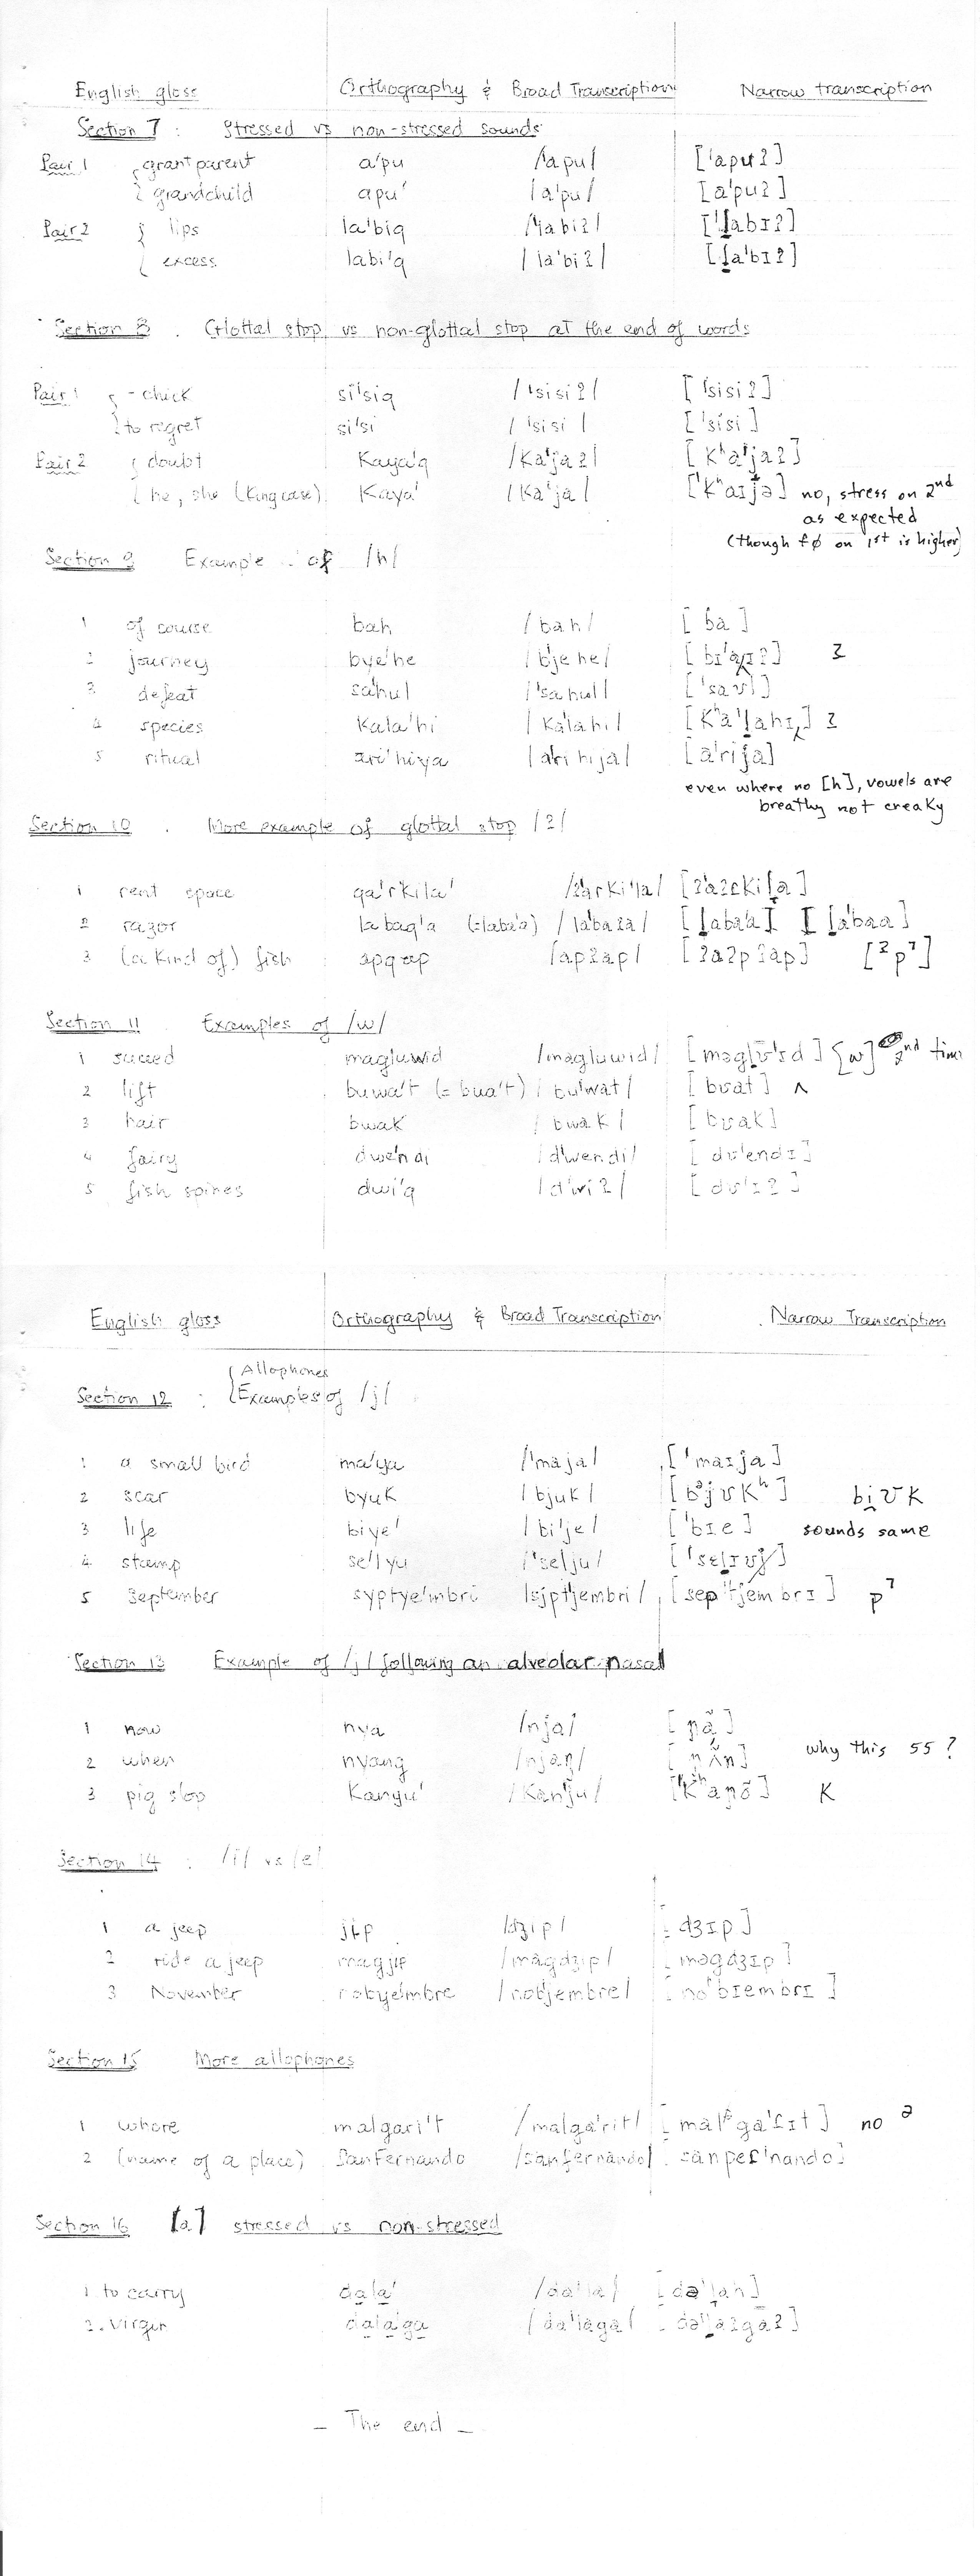 English gloss Orthography & Broad Transcription Narrow transcription
Section 7 : Stressed vs non-stressed sounds
Pair 1 grantparent a'pu /'apu/ ['apuʔ]
grandchild apu' /a'pu/ [a'puʔ]
Pair 2 lips la'biq /'labiʔ/ ['l̠abɪʔ]
excess labi'q /la'biʔ/ [l̠a'bɪʔ]
Section 8 . Glottal stop vs non-glottal stop at the end of words
Pair 1 - chick si'siq /'sisiʔ/ ['sisiʔ]
to regret si'si /'sisi/ ['sisi]
Pair 2 doubt kaya'q /ka'jaʔ/ [kʰa'jaʔ]
he, she (king case) kaya' /ka'ja/ ['kʰaɪjə] no, stress on 2nd
as expected
(though fø on 1st is higher)
Section 9 Example of /h/
1 of course bah /bah/ [ba]
2 journey bye'he /'bjehe/
3 defeat sa'hul /'sahul/ ['saʊl]
4 species kala'hi /ka'lahi/ [kʰa'l̠ahɪ] ʔ
5 ritual ari'hiya /a'rihija/ [a'rija]
even where no [h], vowels are
breathy not creaky
Section 10 . More example of glottal stop /ʔ/
1 rent space qa'rkila' /ʔarki'la/
2 razor labaq'a (=laba'a) /la'baʔa/ [l̠aba'a] [l̠a'baa]
3 (a kind of) fish apqap /apʔap/ [ʔaʔpʔap] [ʔp̚]
Section 11 Examples of /w/
1 succed magluwid /magluwid/ [w] 2nd time
2 lift buwa't (= bua't) /bu'wat/ [bʊat] ʌ
3 hair bwak /bwak/ [bʊak]
4 fairy dwe'ndi /d'wendi/ [dʊ'endɪ]
5 fish spines dwi'q /d'wiʔ/ [dʊ'ɪʔ]
English gloss Orthography & Broad Transcription . Narrow Transcription
Allophones
Section 12 : Examples of /j/
1 a small bird ma'ya /'maja/ ['maɪja]
2 scar byuk /bjuk/ [bᵊjʊkʰ] bi̯ʊk
3 life biye' /bi'je/ ['bɪe] sounds same
4 stamp se'lyu /'selju/
5 September syptye'mbri /sjpt'jembri/ [sep'tjembrɪ] p̚
Section 13 Example of /j/ following an alveolar nasal
1 now nya /nja/ [ɲã]
2 when nyang /njaŋ/ why this 55 ?
3 pig slop kanyu' /kan'ju/ k
Section 14 : /i/ vs /e/
1 a jeep jip /dʒip/ [dʒɪp]
2 ride a jeep magjip /magdʒip/ [məgdʒɪp]
3 November nobye'mbre /nob'jembre/ [no'bɪembrɪ]
Section 15 More allophones
1 whore malgari't /malga'rit/ [malᵊga'ɾɪt] no ə
2 (name of a place) SanFernando /sanfernando/ [sanper'nando]
Section 16 [a] stressed vs non-stressed
1 to carry dala' /da'la/ [də'l̠ah]
2. virgin dala'ga /da'laga/ [də'l̠aʔgaʔ]
_ The end _